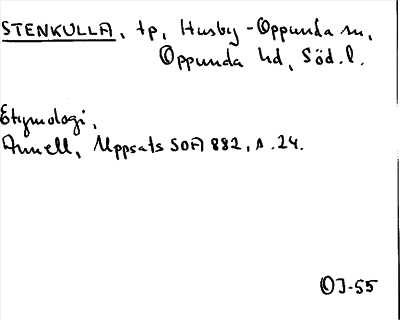 STENKULLA, tp, Husby-Oppunda sn,
Oppunda hd, Söd.l.
Etymologi,
Annell, Uppsats SOFI 882, s. 24.
OJ-55